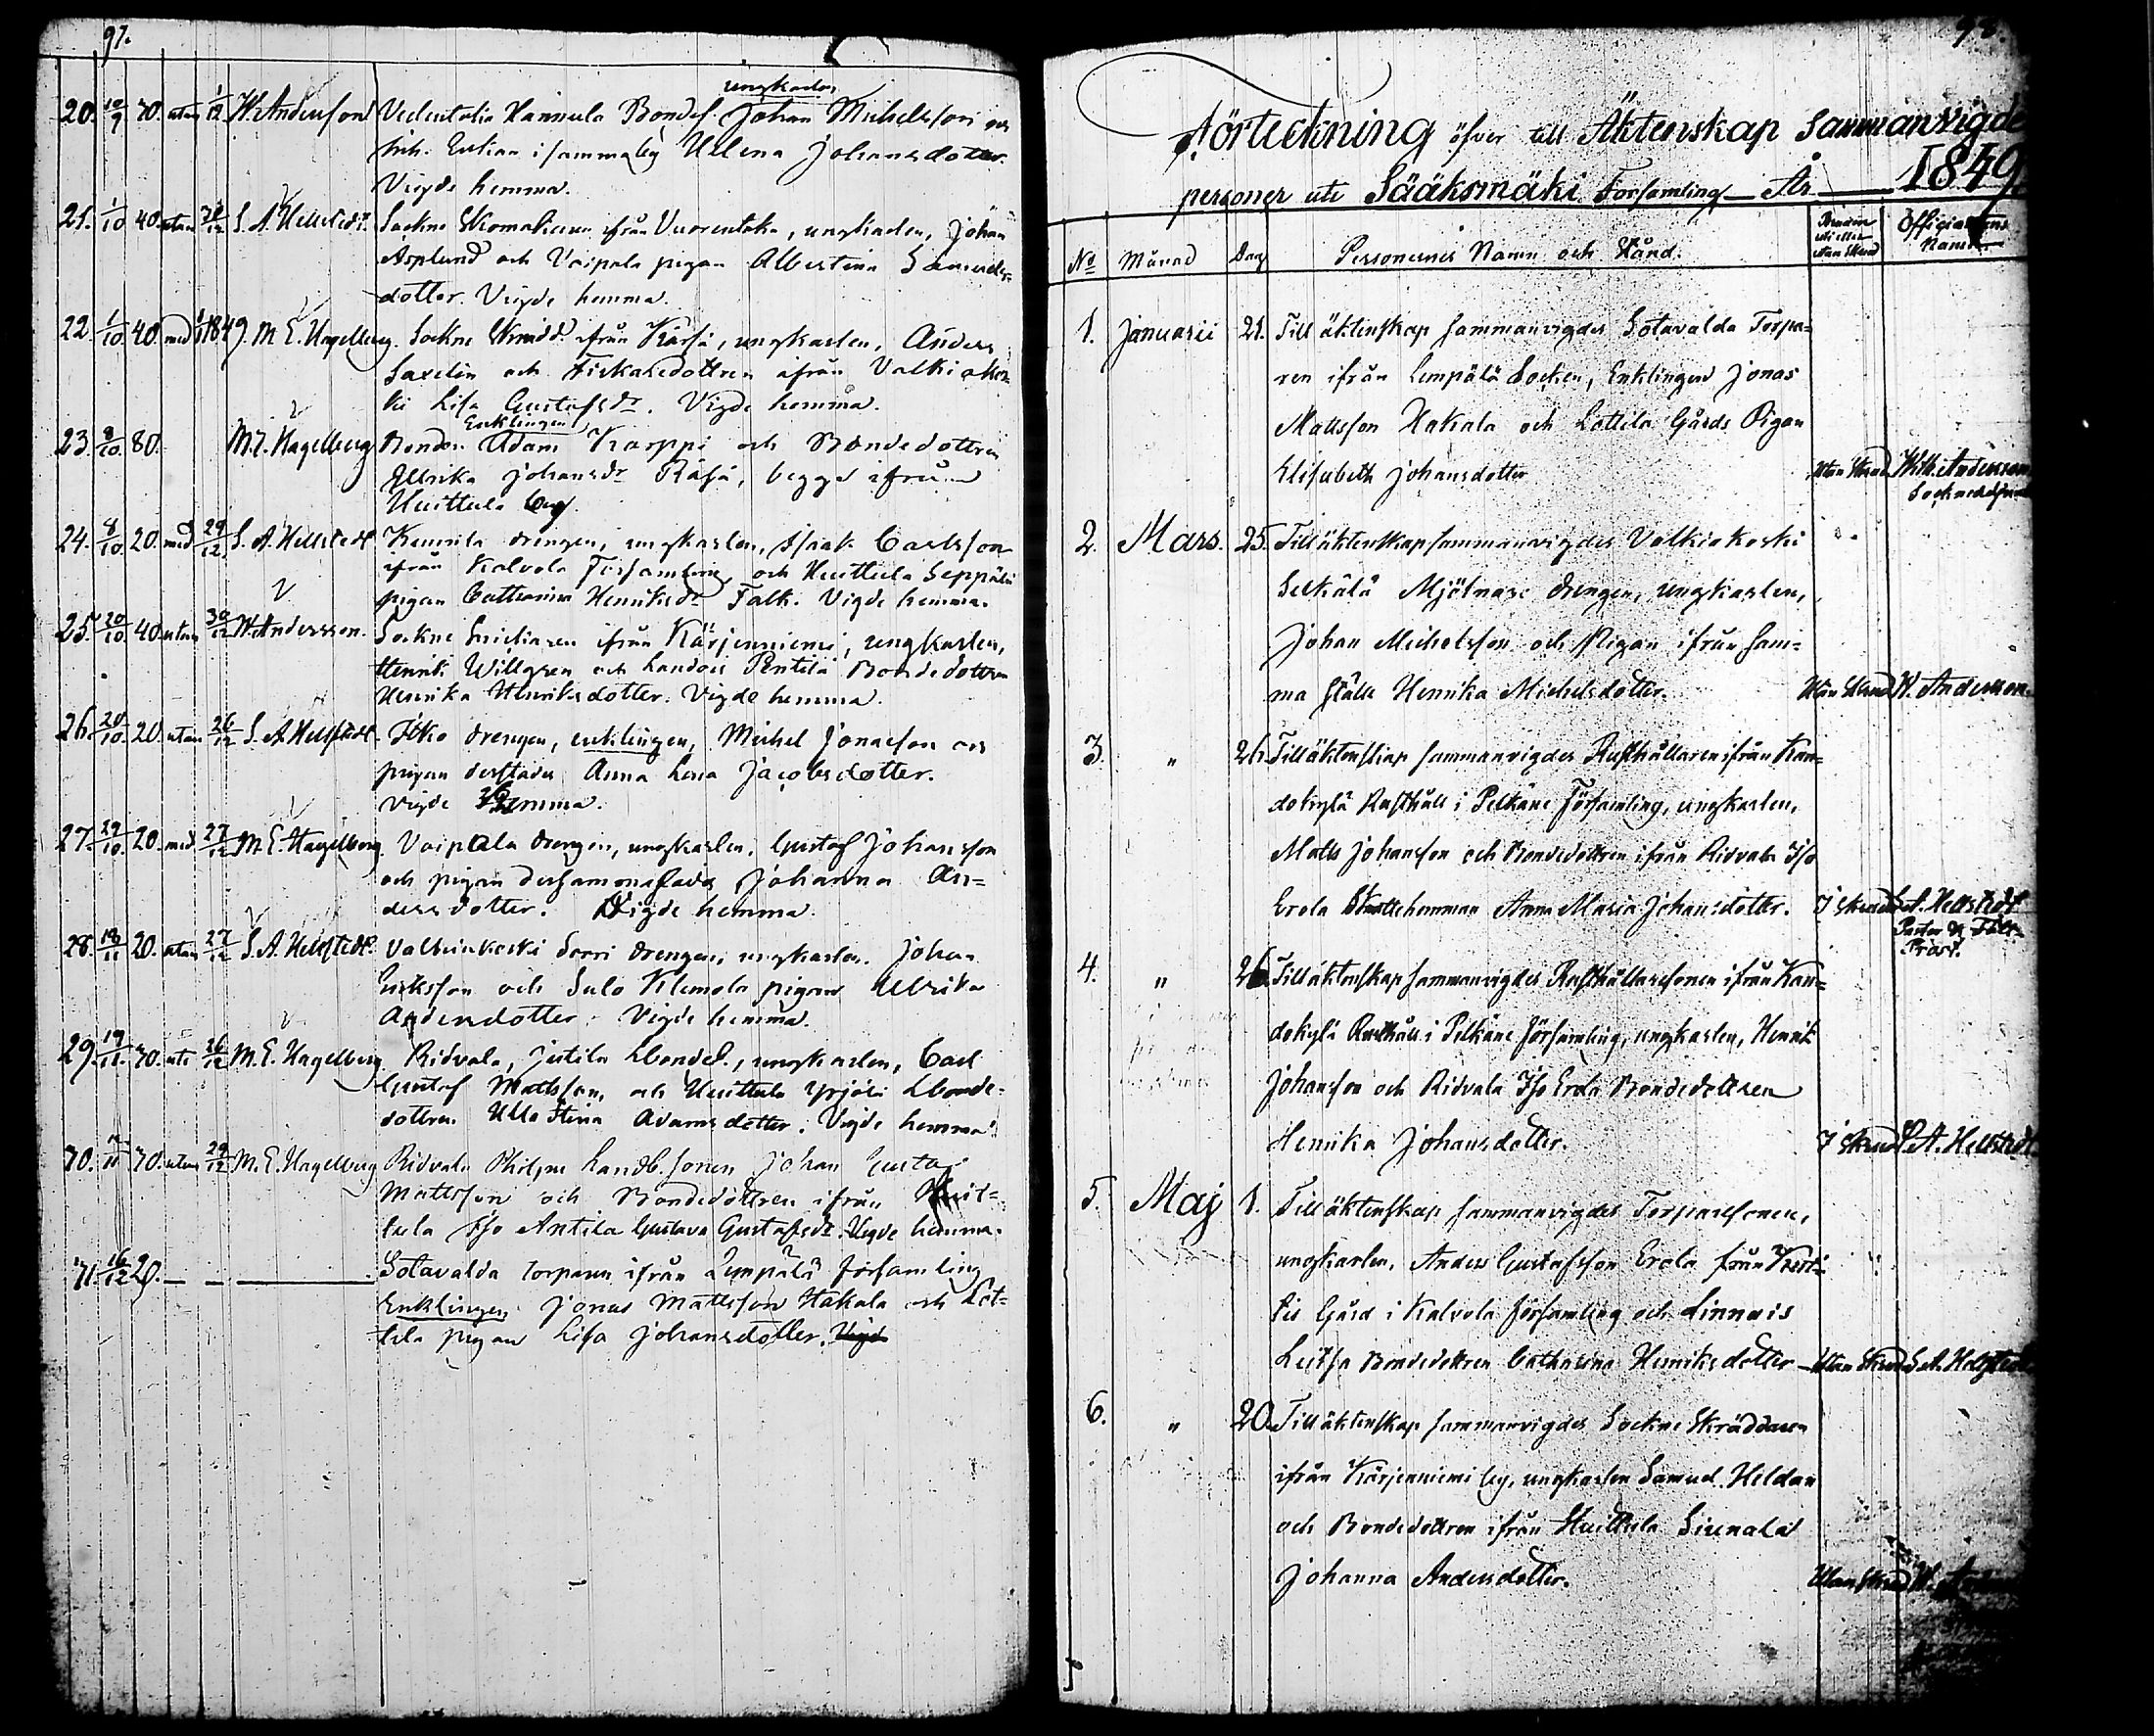 97.
ungkarlen
20. 10/9 70. utan 1/12 W. Andersson Vedentaka Hannula Bondes. Johan Michelsson och
Inh. Enkan i samma by Helena Johansdotter.
Vigde hemma.
21. 1/10 40. utan S. A. Hellstedt. Sockne Skomakaren ifrån Vuorentaka, ungkarlen, Johan
Asplund och Voipala pigan Albertina Samuels-
dotter. Vigde hemma.
22. 1/10 40. med 1849. M. E. Hagelberg. Sockne Smeden ifrån Kärsä, ungkarlen, Anders
Saxelin och Fiskaredottren ifrån Valkiakos-
ki Lisa Gustafsdr. Vigde hemma.
Enklingen
23. 8/10 80. M. E. Hagelberg Bonden Adam Karppi och Bondedottren
Ulrika Johansdr Räsä, begge ifrån
Huittula by.
24. 8/10 20. med 29/12 S. A. Hellstedt Kemnila drengen, ungkarlen, Isaak Carlsson
ifrån Kalvola Församling och Huittula Seppälä
pigan Catharina Henriksdr Falk. Vigde hemma.
25. 20/10 40. utan 30/12 W. Andersson. Sockne Snickaren ifrån Kärjenniemi, ungkarlen,
Henrik Willgren och Landbo Pentilä Bondedottren
Henrika Henriksdotter. Vigde hemma.
26. 20/10. 20. utan 26/12 S. A. Hellstedt. Itko drengen, enklingen, Michel Jonasson och
pigan derstädes Anna Lena Jacobsdotter.
Vigde hemma.
27. 29/10. 20. med 27/12 M. E. Hagelberg. Voipala drengen, ungkarlen, Gustaf Johansson
och pigan dersammastädes Johanna An-
dersdotter. Vigde hemma.
28. 18/11 20. utan 27/12 S. A. Hellstedt. Valkiakoski Sorri drengen, ungkarlen, Johan
Eriksson och Sulo Klemola pigan Ulrika
Andersdotter. Vigde hemma.
29. 19/11. 70. uti 26/12 M. E. Hagelberg. Ridvala, Jutila Bondes., ungkarlen, Carl
Gustaf Mattsson, och Huittula Yrjölä Bonde-
dottren Ulla Stina Adamsdotter. Vigde hemma.
70. 70. utan 29/12 M. E. Hagelberg Ridvala Philpu Landb. sonen Johan Gustaf
Mattsson och Bondedottren ifrån Huit-
tula Iso Antila Gustava Gustafsdr. Vigde hemma.
71. 16/12 20. Sotavalda torparen ifrån Lempälä församling
Enklingen Jonas Mattsson Hakala och Lot-
tila pigan Lisa Johansdotter. Vigd
98.
Förteckning öfver till Äktenskap Sammanvigde
personer uti Sääksmäki Församling År 1849.
No Månad Dag Personernes Namn och Stånd. Bruden uti eller utan Skrud Officiantens Namn
1. Januarii 21. Till äktenskap sammanvigdes Sotavalda Torpa-
ren ifrån Lempälä Socken, Enklingen Jonas
Mattsson Hakala och Lottila Gårds Pigan
Elisabeth Johansdotter Utan Skrud Wilh. Andersson
2. Mars. 25. Till äktenskap sammanvigdes Valkiakoski
Selkälä Mjölnare drengen, ungkarlen,
Johan Michelsson och Pigan ifrån sam-
ma ställe Henrika Michelsdotter. Utan Skrud W. Andersson.
3. " 26. Till äktenskap sammanvigdes Rusthållaren ifrån Kan-
dokylä Rusthåll i Pelkäne Församling, ungkarlen,
Matts Johansson och Bondedottren ifrån Ridvala Iso
Erola Skattehemman Anna Maria Johansdotter. I skrud S. A. Hellstedt
Pastor & Fält-
Prost.
4. " 26. Till äktenskap sammanvigdes Rusthållaresonen ifrån Kan-
dokylä Rusthåll i Pelkäne församling, ungkarlen, Henrik
Johansson och Ridvala Iso Erola Bondedottren
Henrika Johansdotter. I skrud S. A. Hellstedt.
5. Maj 1. Till äktenskap sammanvigdes Torparesonen,
ungkarlen, Anders Gustafsson Erola från
Gård i Kalvola församling och Linnais
Bondedottren Catharina Henriksdotter Utan Skrud S. A. Hellstedt
6. " 20. Till äktenskap sammanvigdes Sockne Skräddaren
ifrån Kärjenniemi by, ungkarlen Samuel Heldan
och Bondedottren ifrån Huittula Sirenalä
Johanna Andersdotter. Utan Skrud W.